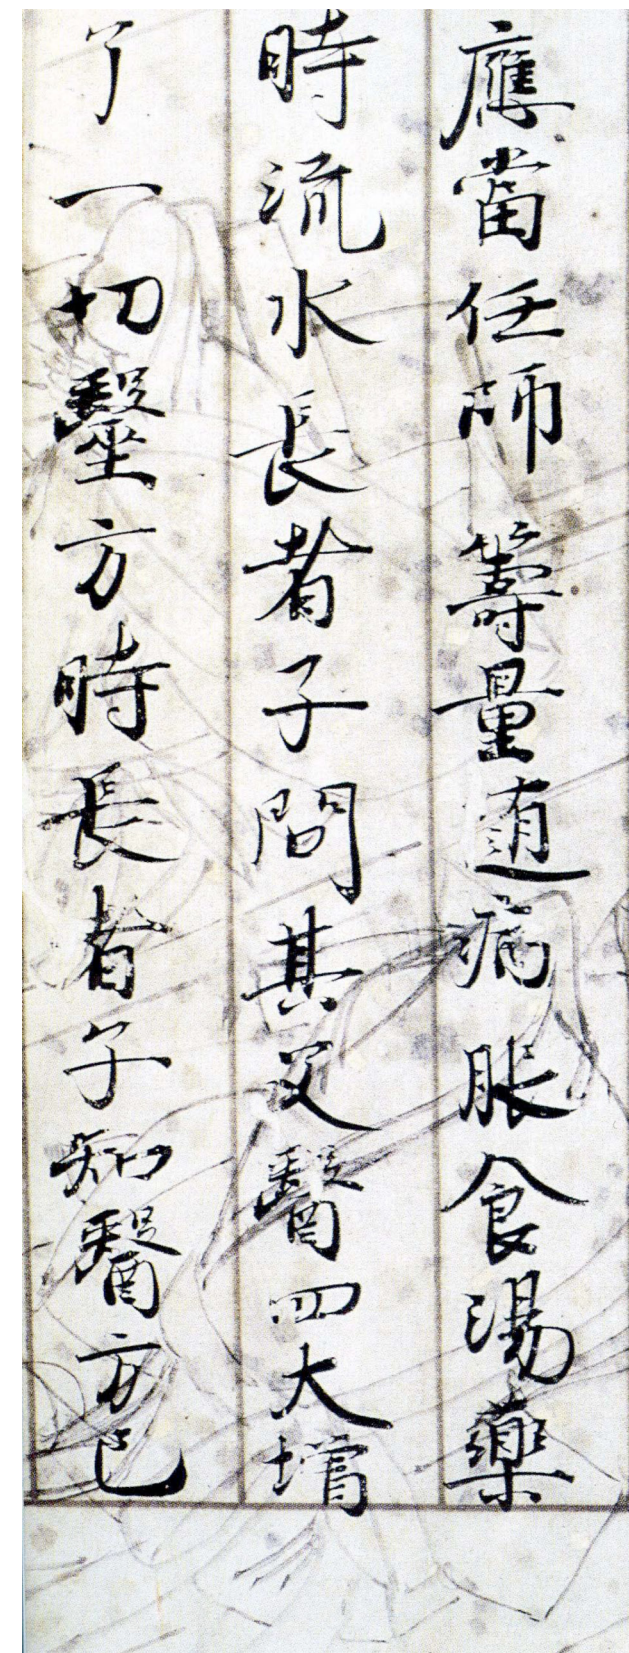 應當任師籌量随病服食湯藥
時流水長者子問其父醫四大增
了一切毉方時長者子知醫方已